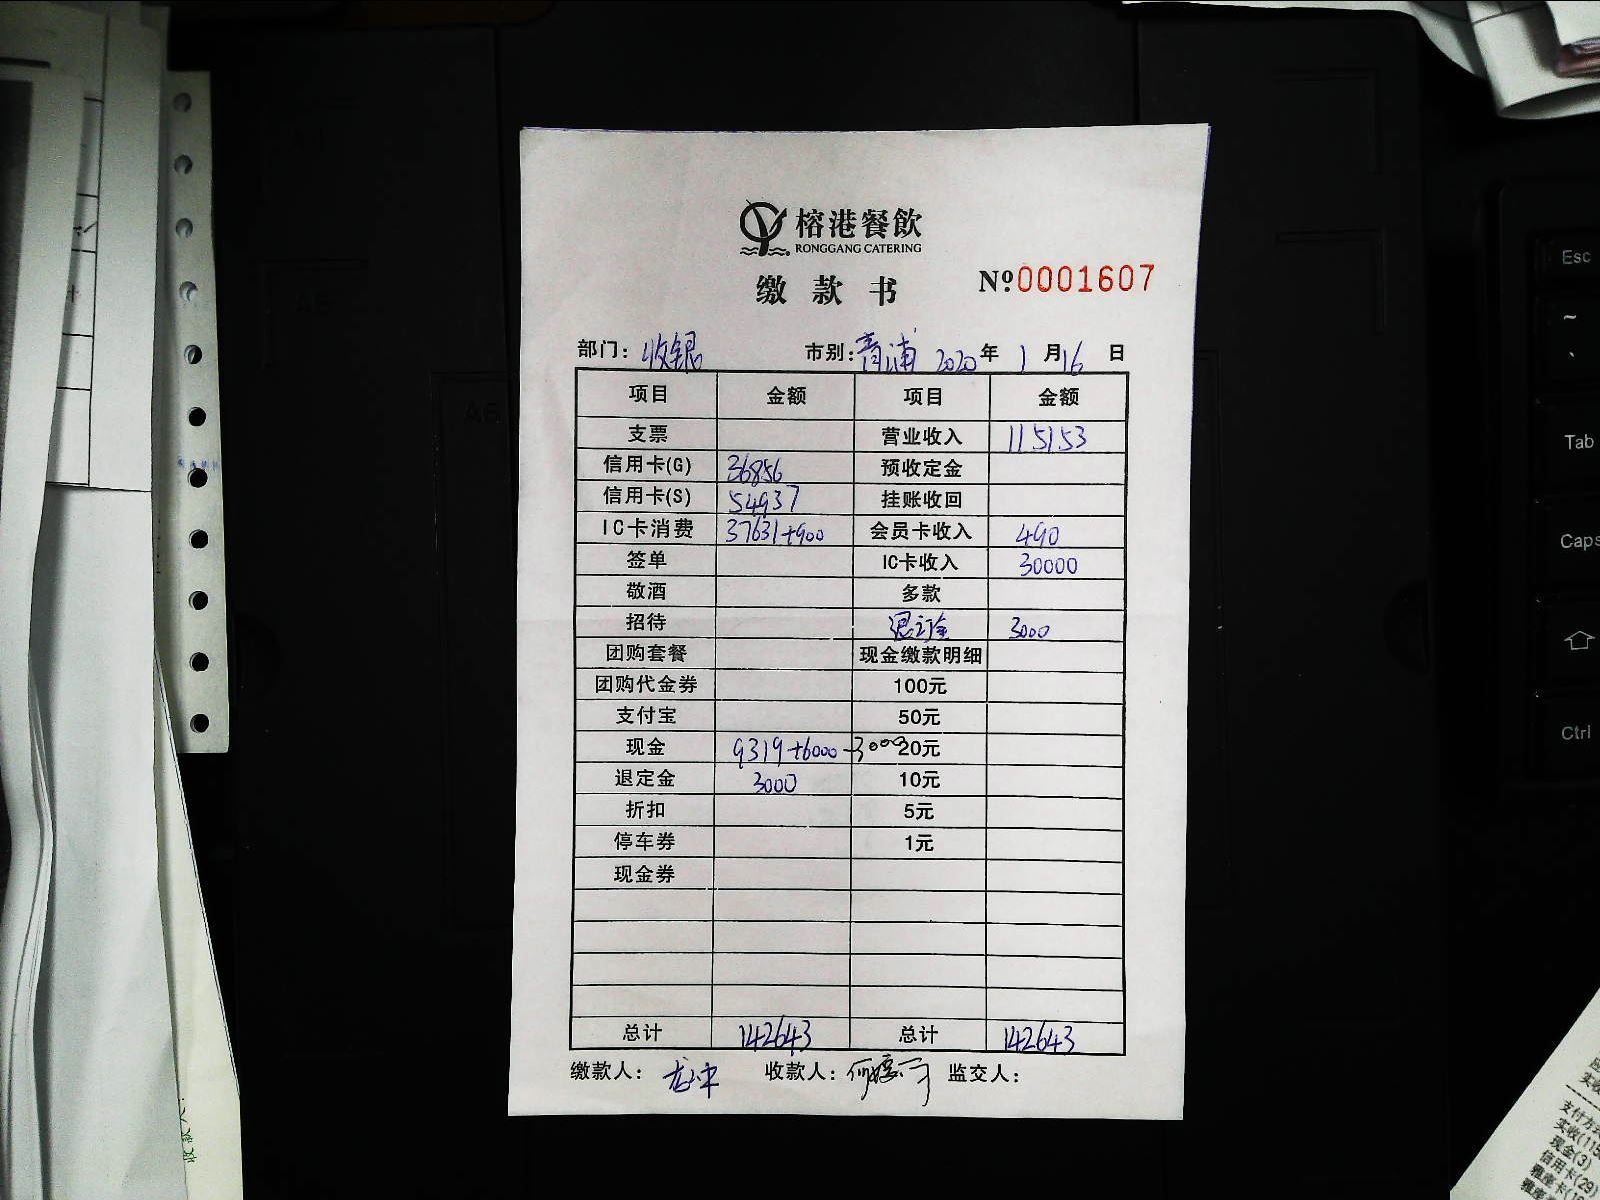 榕港餐飲
RONGGANG CATERING
缴款书
№0001607
部门：收银 市别：青浦 2020年1月16日
项目 金额 项目 金额
支票 营业收入 115153
信用卡(G) 36856 预收定金
信用卡(S) 54937 挂账收回
IC卡消费 37631+900 会员卡收入 490
签单 IC卡收入 30000
敬酒 多款
招待 退订金 3000
团购套餐 现金缴款明细
团购代金券 100元
支付宝 50元
现金 9319+6000-3000 20元
退定金 3000 10元
折扣 5元
停车券 1元
现金券
总计 142643 总计 142643
缴款人： 收款人： 监交人：
Esc
~
、
Tab
Caps
Ctrl
A6
支付方
实收(115
现金(3)
信用卡(29)